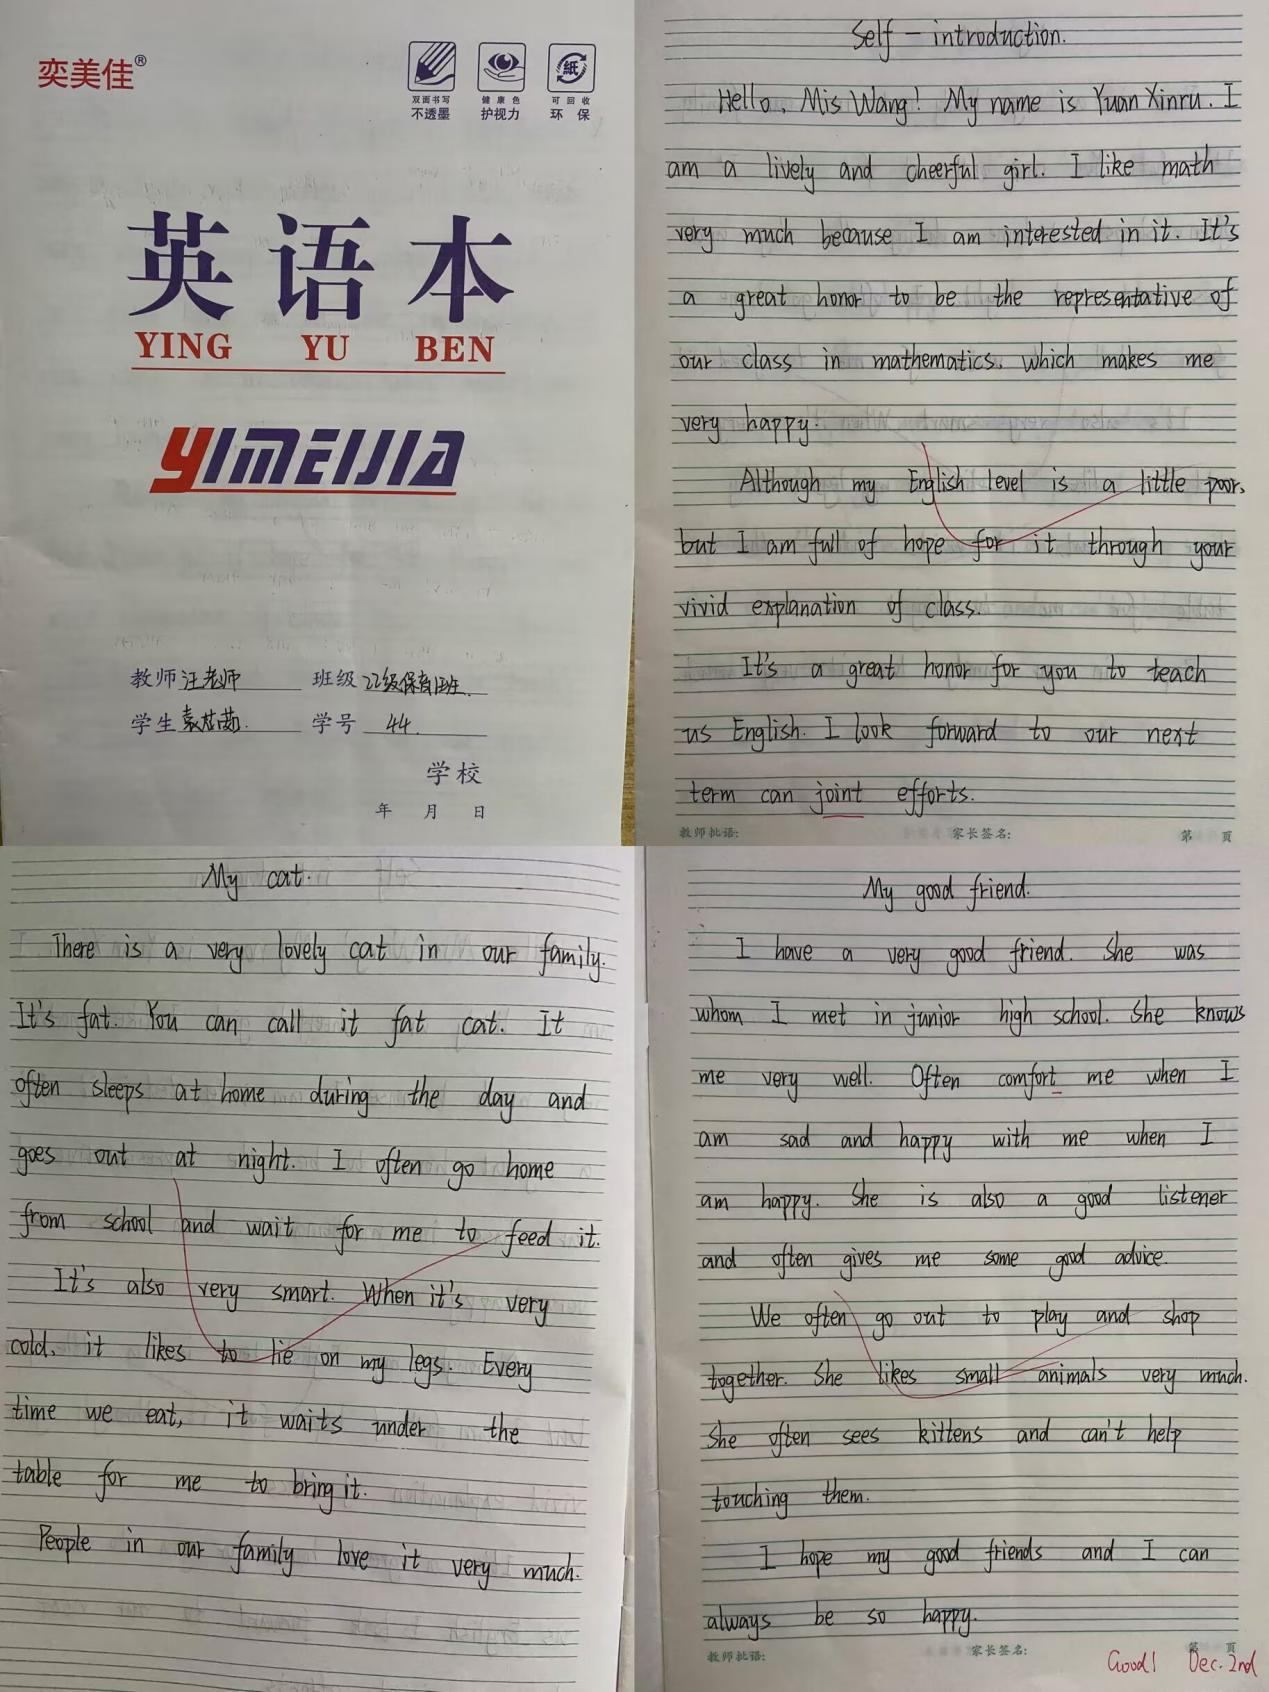 奕美佳®
双面书写 健康色 可回收
不透墨 护视力 环保
英语本
YING YU BEN
YIMEIJIA
教师 汪老师 班级 22级保育1班
学生 袁 学号 44
学校
年 月 日
Self-introduction.
Hello, Mis Wang! My name is Yuan Xinru. I
am a lively and cheerful girl. I like math
very much because I am interested in it. It's
a great honor to be the representative of
our class in mathematics, which makes me
very happy.
Although my English level is a little poor,
but I am full of hope for it through your
vivid explanation of class.
It's a great honor for you to teach
us English. I look forward to our next
term can joint efforts.
教师批语: 家长签名: 第 页
My cat.
There is a very lovely cat in our family.
It's fat. You can call it fat cat. It
often sleeps at home during the day and
goes out at night. I often go home
from school and wait for me to feed it.
It's also very smart. When it's very
cold, it likes to lie on my legs. Every
time we eat, it waits under the
table for me to bring it.
People in our family love it very much.
My good friend.
I have a very good friend. She was
whom I met in junior high school. She knows
me very well. Often comfort me when I
am sad and happy with me when I
am happy. She is also a good listener
and often gives me some good advice.
We often go out to play and shop
together. She likes small animals very much.
She often sees kittens and can't help
touching them.
I hope my good friends and I can
always be so happy.
教师批语: 家长签名: 第 页
Good! Dec. 2nd